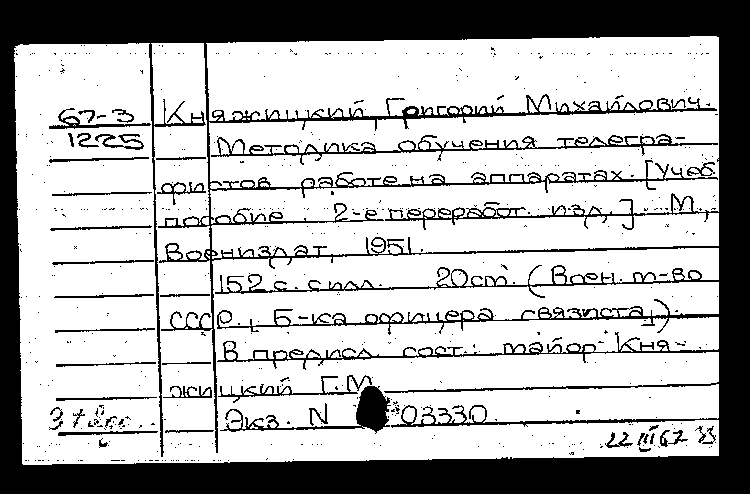 67-3 Княжицкий, Григорий Михайлович.
1225 Методика обучения телегра-
фистов работе на аппаратах. [Учеб.
пособие. 2-е переработ. изд,]. М.,
Воениздат, 1951.
152 с. с илл. 20cm. (Воен. м-во
СССР., Б-ка офицера связиста,).
В предисл. сост.: майор Кня-
жицкий Г.М.
Экз. N 03330.
22 III 67